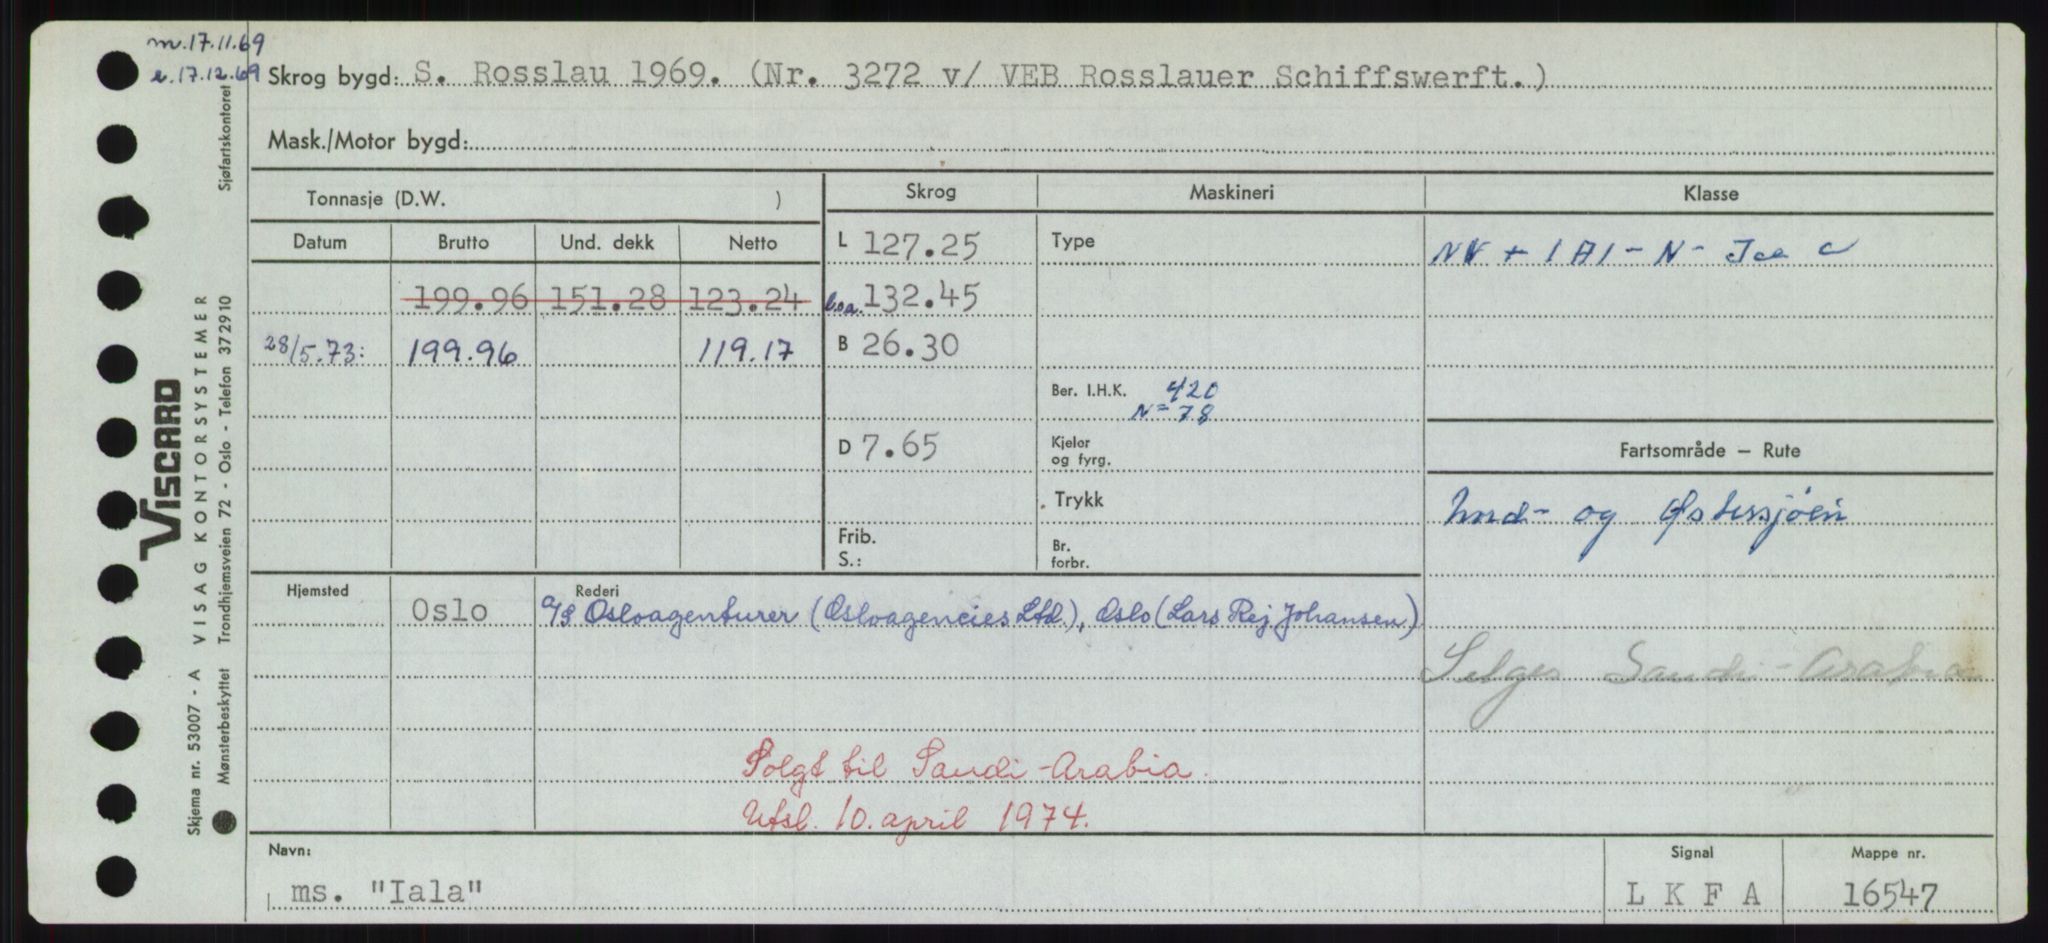 m. 17.11.69
e. 17.12.69
Skrog bygd: S. Rosslau 1969. (Nr. 3272 v/ VEB Rosslauer Schiffswerft.)
Mask./Motor bygd:
Tonnasje (D.W. )
Skrog Maskineri Klasse
Datum Brutto Und. dekk Netto
L 127.25 Type NV + 1A1 - N - Ice C
199.96 151.28 123.24 loa. 132.45
28/5.73: 199.96 119.17 B 26.30
Ber. I.H.K. 420
N= 78
D 7.65 Kjeler
og fyrg.
Fartsområde – Rute
Trykk
Nord- og Østersjöen
Frib.
S.:
Br.
forbr.
Hjemsted Rederi
Oslo A/S Osloagenturer (Osloagencies Ltd.), Oslo (Lars Rej Johansen)
Selges Saudi-Arabia
Solgt til Saudi-Arabia.
Utsl. 10. april 1974.
Navn: Signal Mappe nr.
ms. "Iala" L K F A 16547
Skjema nr. 53007 - A VISAG KONTORSYSTEMER Sjøfartskontoret
Mønsterbeskyttet Trondhjemsveien 72 - Oslo - Telefon 372910
VISCARD